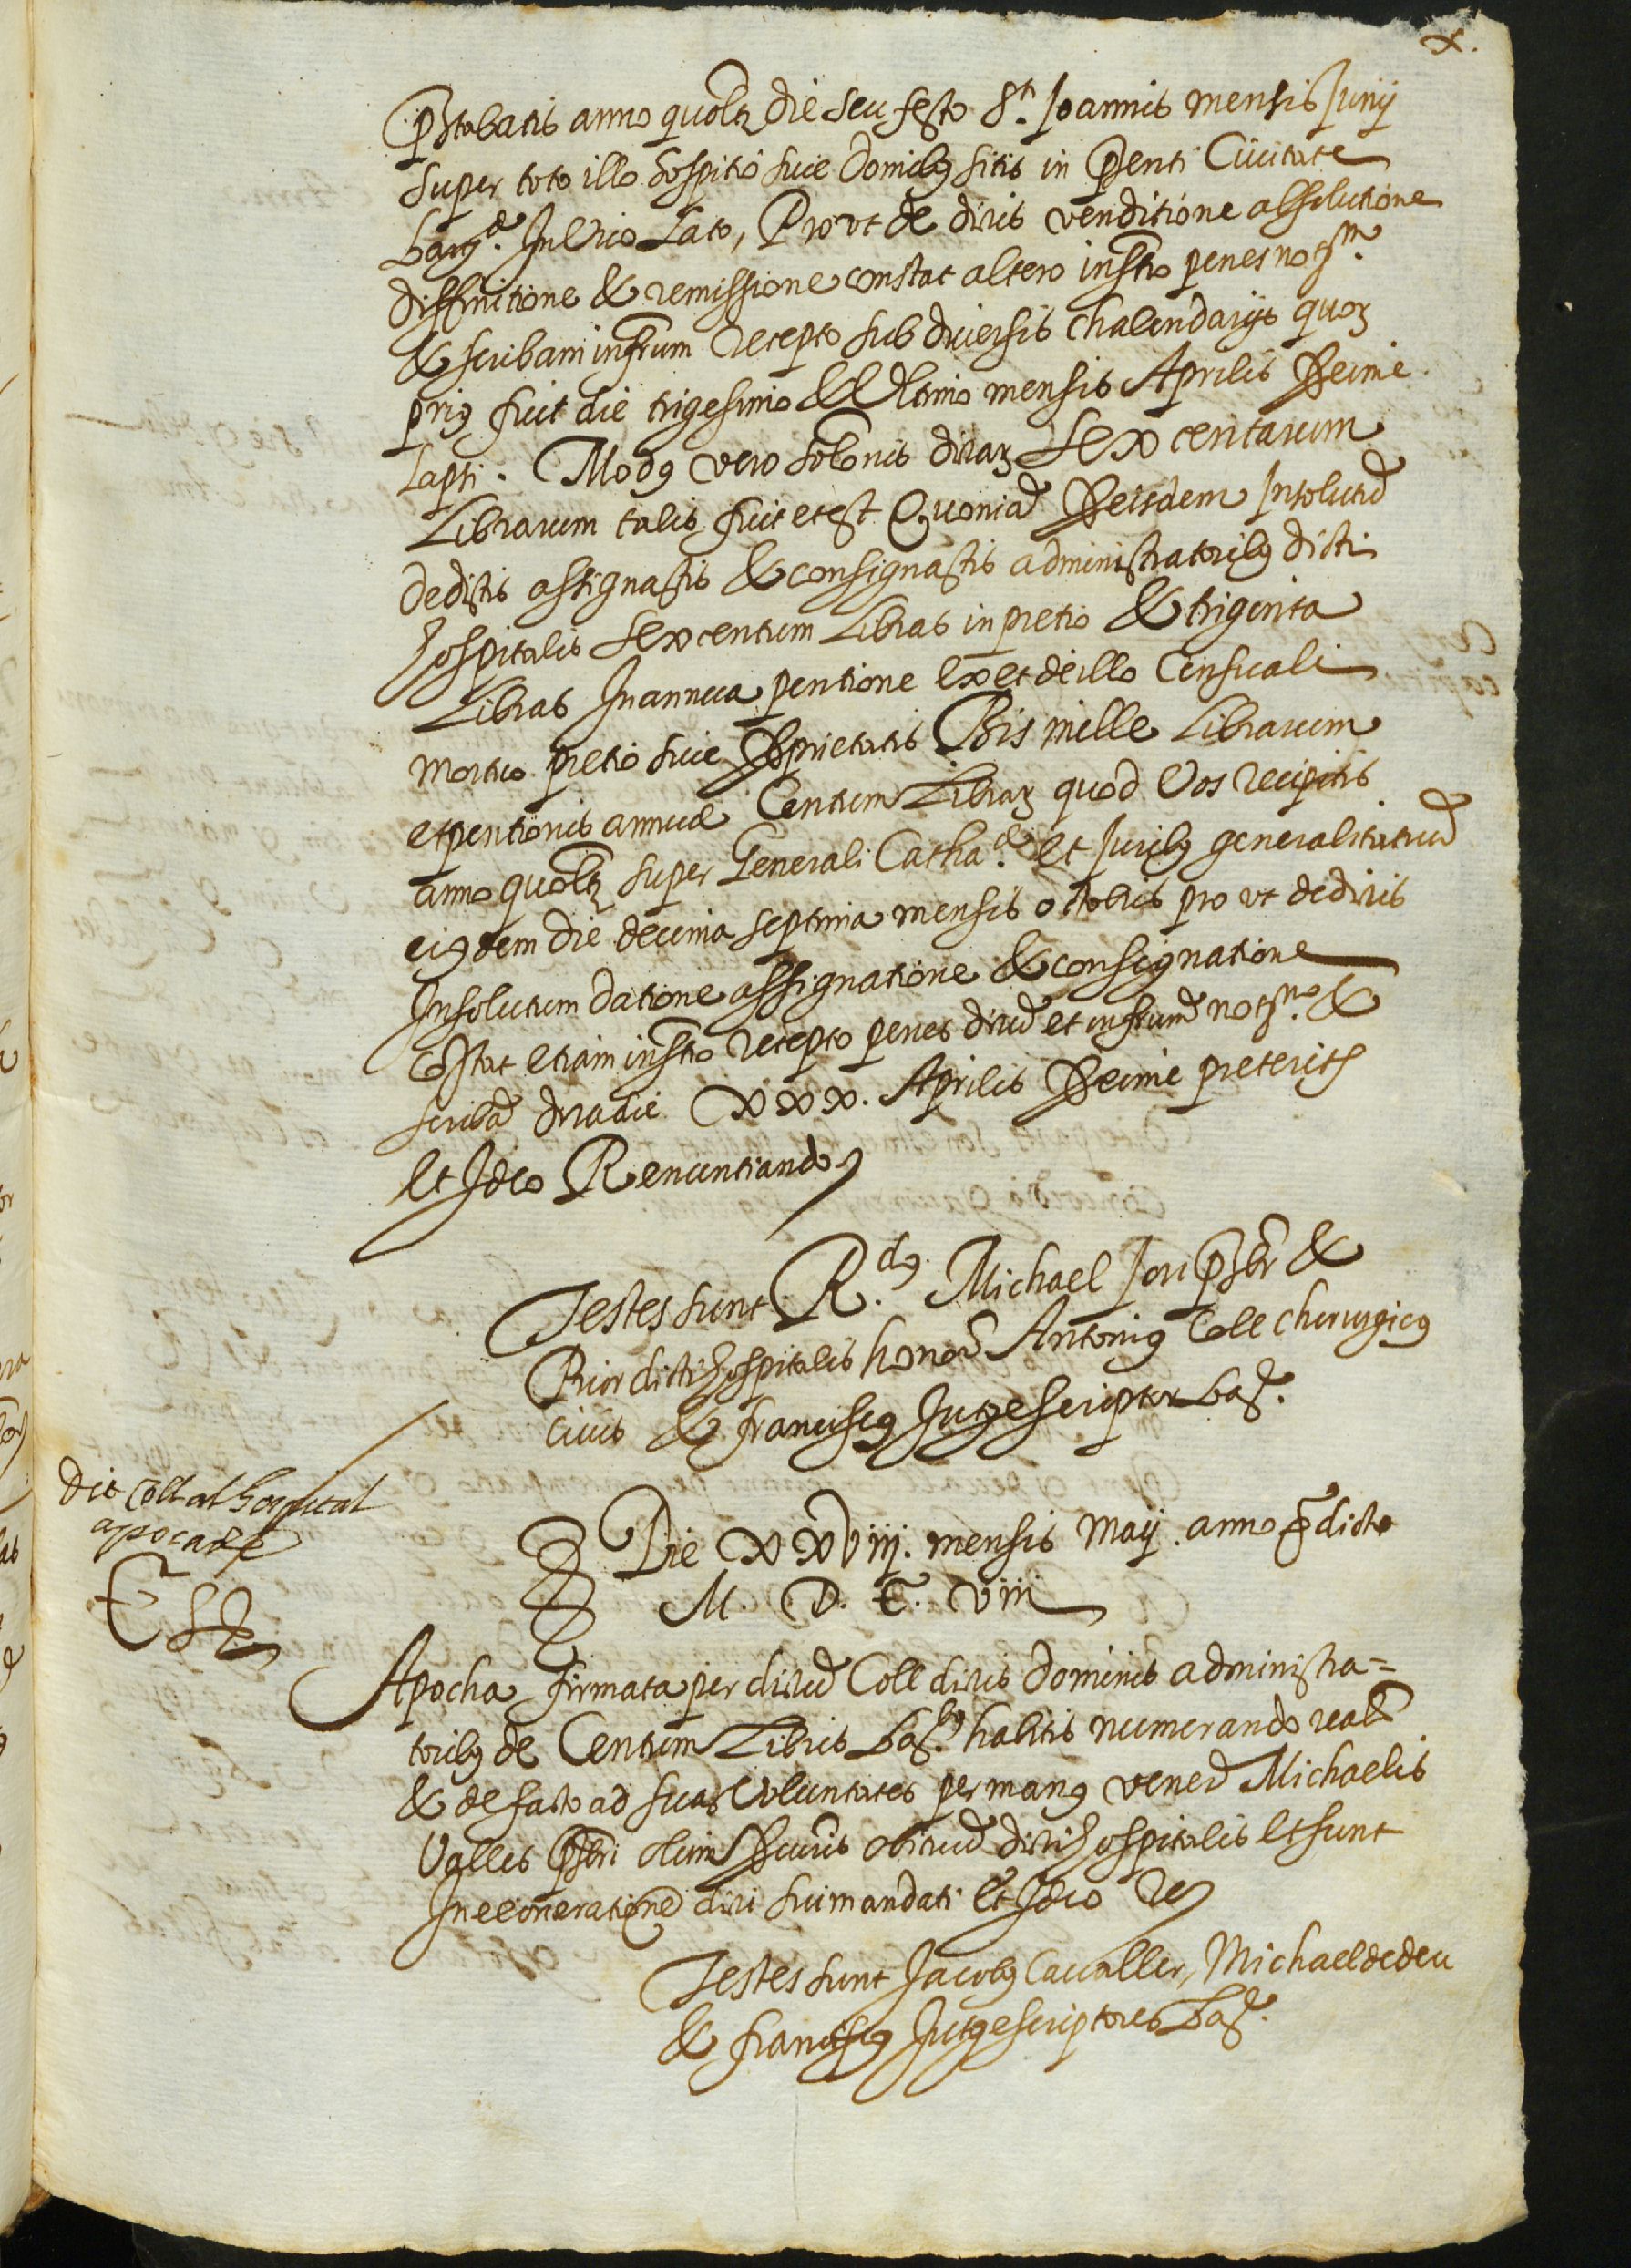 x.
p̃stabatis anno quolꝫ die seu festo Sti. Joannis mensis Junij
super toto illo hospitio siue domibꝫ sitis in p̃senti Ciuitate
Barꝫe. In Vico Lato, Prout de dictis venditione absolutione
diffinitione & remissione constat altero instr̃o penes notm.
& scribam infr̃um recepto sub diuersis chalendarijs quoꝝ
priꝯ fuit die trigesimo & Vltimo mensis Aprilis Pxime
Lapsi. Modꝯ vero sol̃onis dictaꝝ Sexcentarum
Librarum talis fuit et est Quoniã Pseisdem Insolutũ
dedistis assignastis & consignastis administratoribꝫ dicti
Hospitalis Sexcentum Libras in pretio & triginta
Libras In annua pentione Ex et de illo Censuali
mortuo pretio siue Pprietatis Bis mille Librarum
et pentionis annuæ Centum Libraꝝ quod Vos recipitis
anno quolꝫ super Generali Catha.e et Juribꝫ generalitatũ
eiꝯdem die decima septima mensis octobris pro ut de dictis
Insolutum datione assignatione & consignatione
cõstat etiam instr̃o recepto penes dictũ et infr̃um notm. &
scribã dicta die XXX. Aprilis Pxime preteriti
Et Ideo Renuntiando
Testes sunt R.dꝯ Michael Jori p̃sbr &
Prior dicti Hospitalis honor̃ Antoniꝯ Coll chirurgicꝯ
ciuis & Franciscꝯ Jutge scriptor Baꝫ.
Dit Coll al hospital
apoca de
C ll
Die XXViij. mensis Maij anno p̃dicto
M. D. C. Viij
Apocha firmata per dictũ Coll dictis Dominis administra=
toribꝫ de Centum Libris Baꝫ. habitis numerando realr̃
& de facto ad suas Voluntates per manꝯ vener̃ Michaelis
Valles p̃sbri olim Pcuris obituũ dicti Hospitalis et sunt
In exoneratione dicti sui mandati Et Ideo Re
Testes sunt Jacobꝯ Cauallер, Michael dedeu
& Franciscꝯ Jutge scriptores Baꝫ.